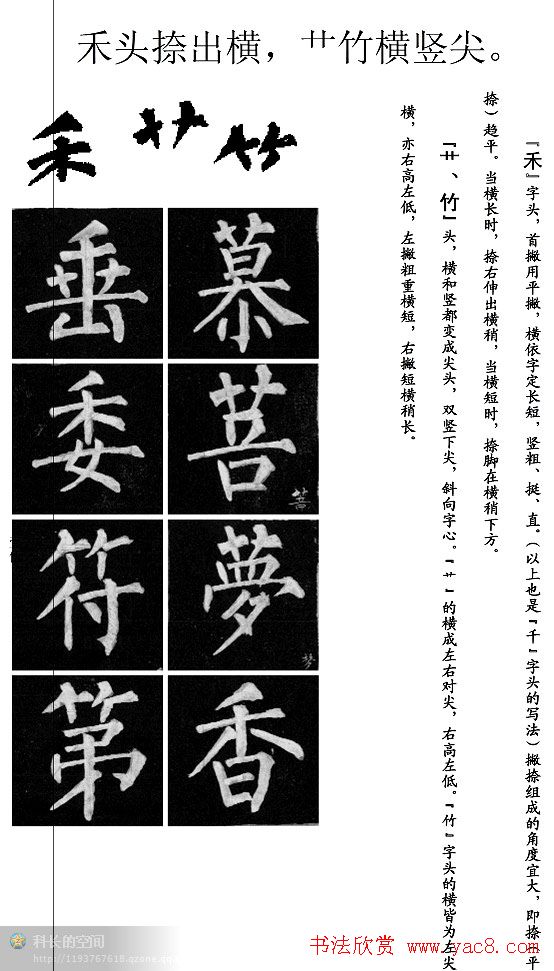 禾头捺出横，艹竹横竖尖。
『禾』字头，首撇用平撇，横依字定长短，竖粗、挺、直。（以上也是『千』字头的写法）撇捺组成的角度宜大，即捺（平
捺）趋平。当横长时，捺右伸出横稍，当横短时，捺脚在横稍下方。
『艹、竹』头，横和竖都变成尖头，双竖下尖，斜向字心。『艹』的横成左右对尖，右高左低。『竹』字头的横皆为左尖
横，亦右高左低，左撇粗重横短，右撇短横稍长。
禾 艹 竹
垂 慕
委 菩
菩
符 夢
梦
第 香
科长的空间
http://1193767618.qzone.qq
书法欣赏 www.yac8.com